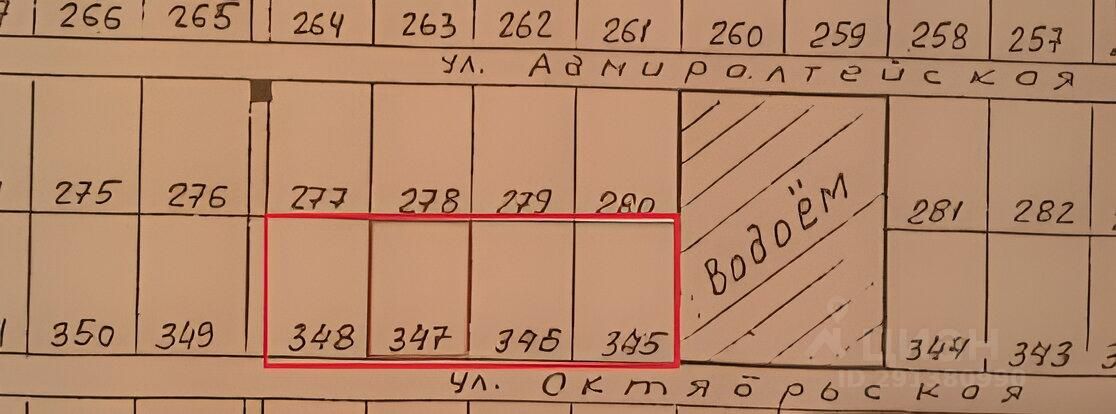 266 265 264 263 262 261 260 259 258 257
ул. Адмиралтейская
275 276 277 278 279 280 281 282
Водоём
350 349 348 347 346 345 344 343
ул. Октябрьская
ЦИАН